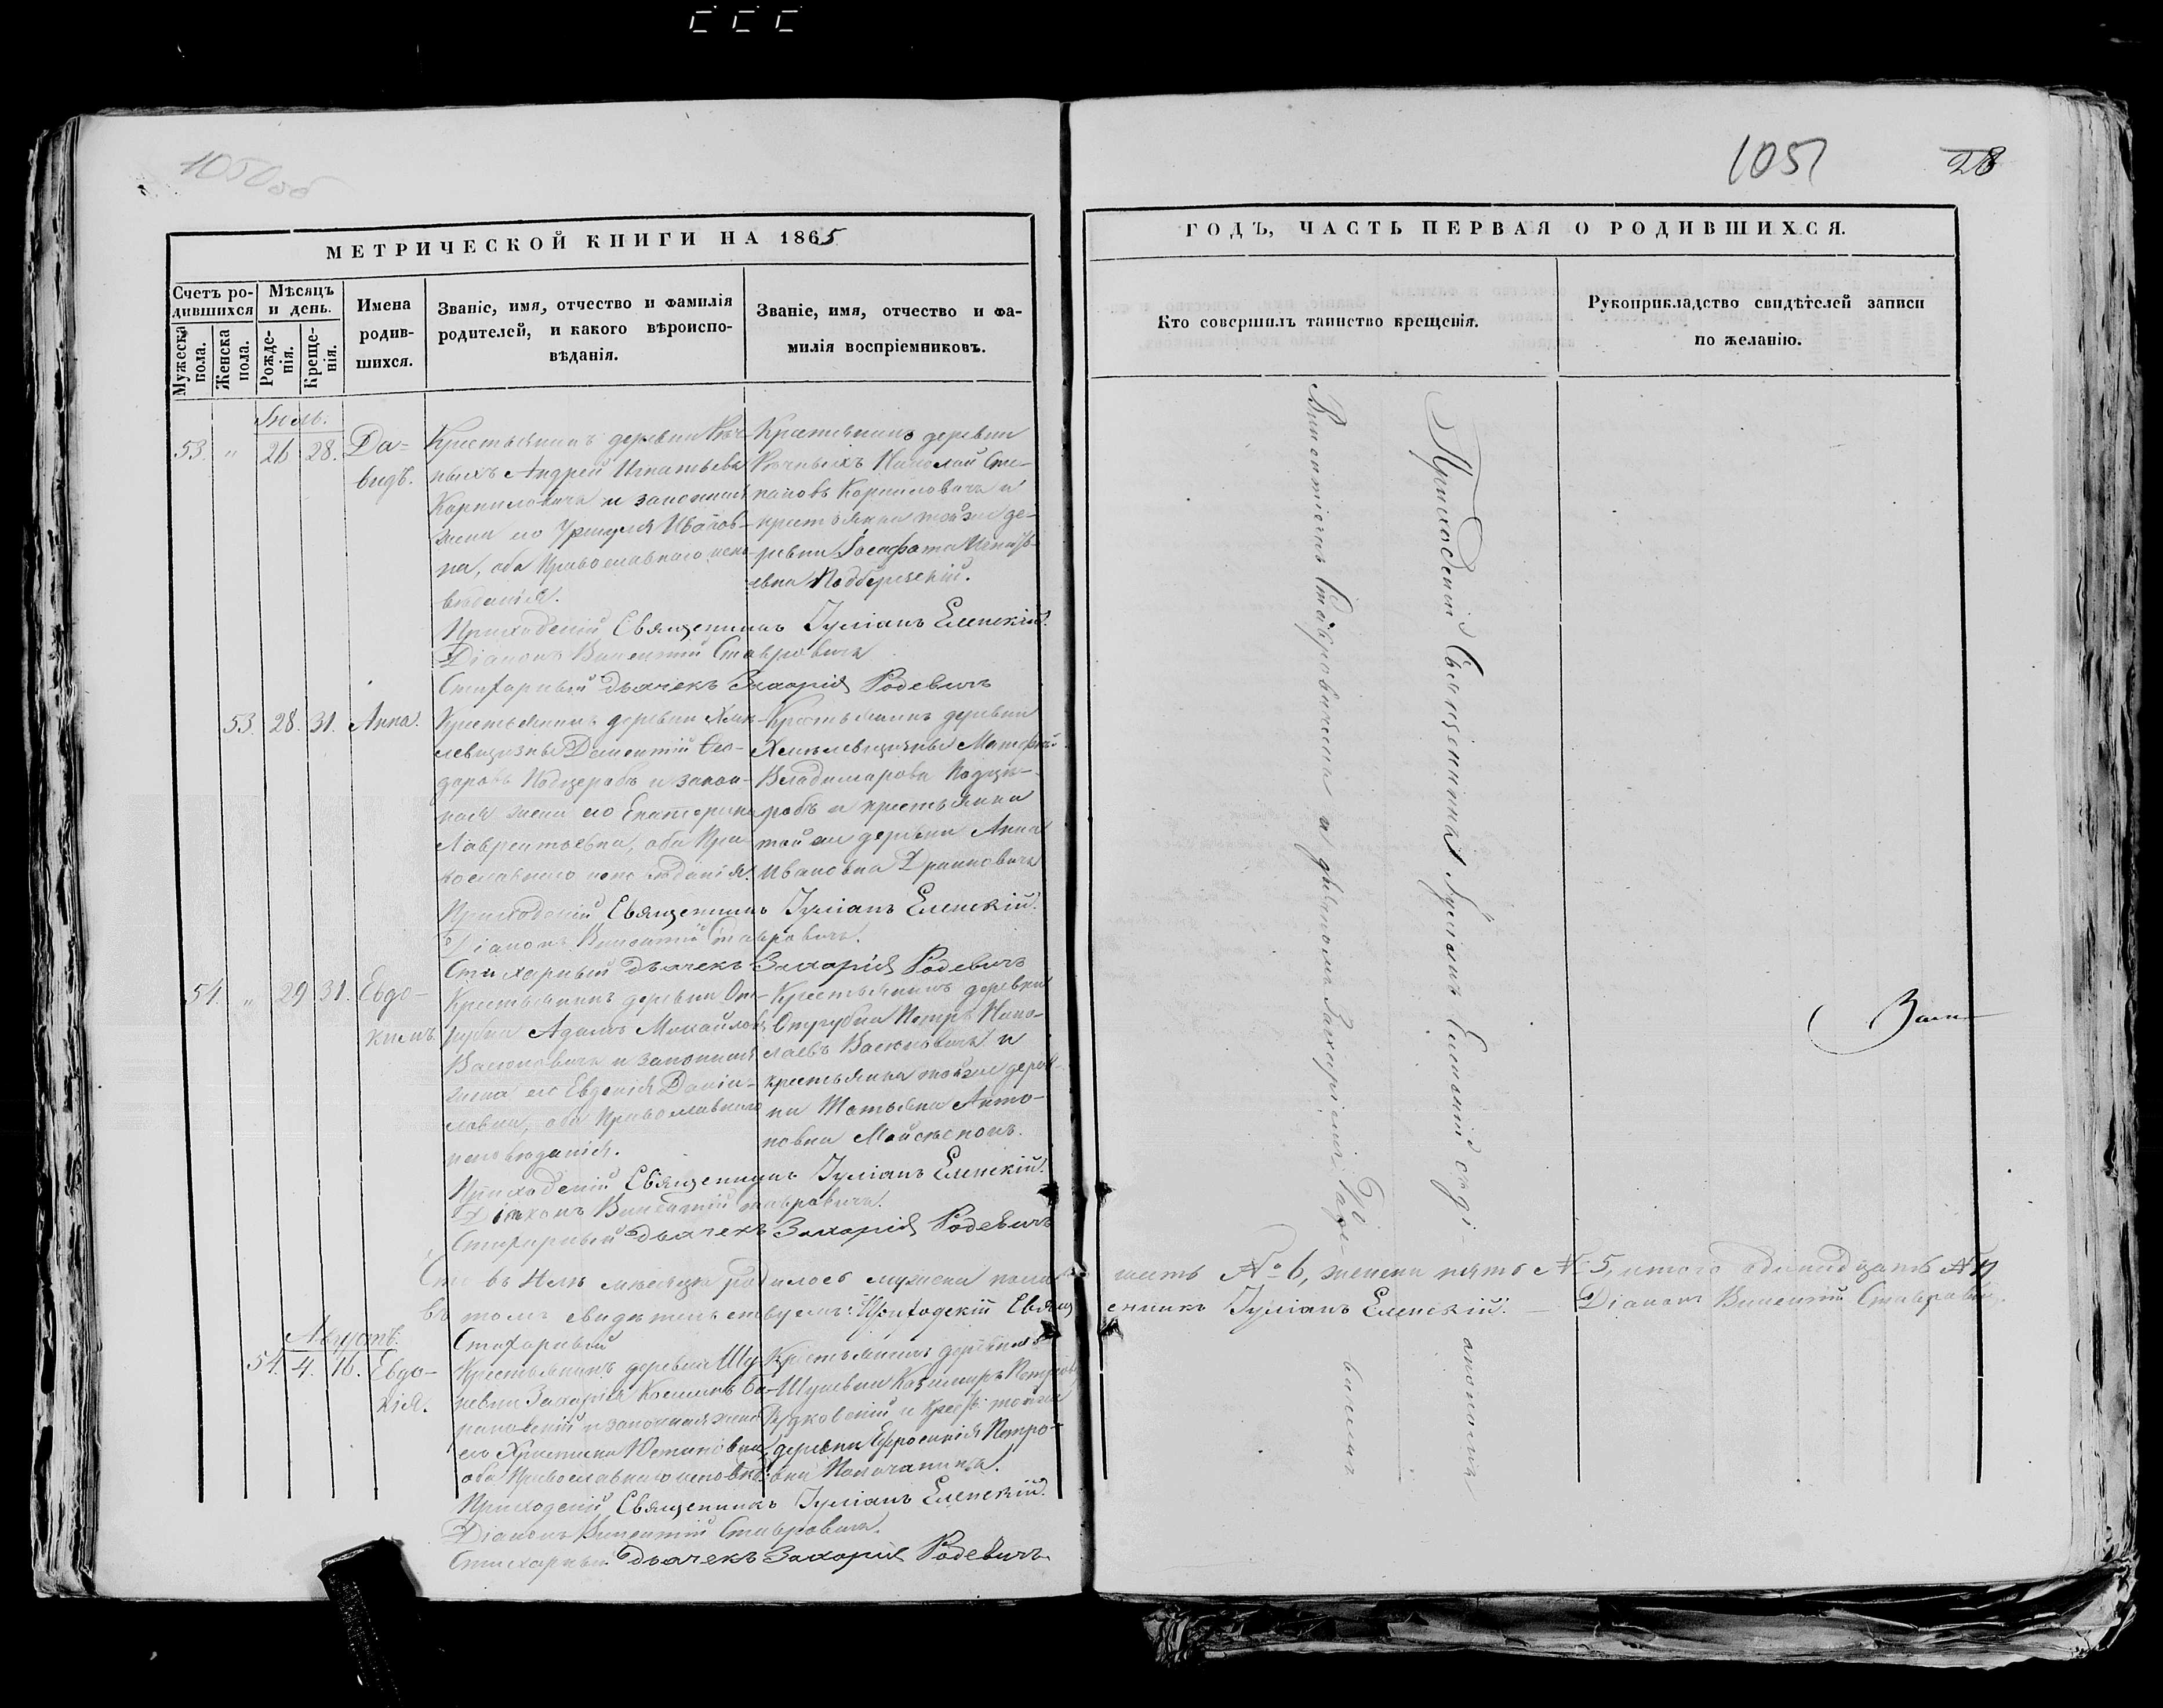 1050 об
1051
28
МЕТРИЧЕСКОЙ КНИГИ НА 1865
ГОДЪ, ЧАСТЬ ПЕРВАЯ О РОДИВШИХСЯ.
Счетъ ро-
дившихся
Мужеска
пола.
Женска
пола.
Мѣсяцъ
и день.
Рожде-
нія.
Креще-
нія.
Имена
родив-
шихся.
Званіе, имя, отчество и фамилія
родителей, и какого вѣроиспо-
вѣданія.
Званіе, имя, отчество и фа-
милія воспріемниковъ.
Кто совершилъ таинство крещенія.
Рукоприкладство свидѣтелей записи
по желанію.
Іюль.
53. " 26 28. Да-
видъ.
Крестьянинъ деревни
ныхъ Андрей Игнатьевъ
Корниловичъ и законная
жена его Уршуля Иванов-
на, оба Православнаго испо-
вѣданія.
Крестьянинъ деревни
Николай Сте-
пановъ Корниловичъ и
крестьянка той же де-
ревни Іосафата Игнать-
евна Подберезскій.
Приходскій Священникъ Іуліанъ Еленскій.
Діаконъ Викентій Ставровичъ
Стихарный дьячекъ Захарія Родевичъ
53. 28. 31. Анна.
Крестьянинъ деревни Хмѣ-
левщизны Дементій Ѳео-
доровъ Подцеробъ и закон-
ная жена его Екатерина
Лаврентьевна, оба Пра-
вославнаго исповѣданія.
Крестьянинъ деревни
Хмѣлевщизны Матфей
Владимировъ Подце-
робъ и крестьянка
той же деревни Анна
Ивановна
Приходскій Священникъ Іуліанъ Еленскій.
Діаконъ Викентій Ставровичъ.
Стихарный дьячекъ Захарія Родевичъ
54. " 29 31. Евдо-
кимъ.
Крестьянинъ деревни От-
рубка Адамъ Михайловъ
Васюковичъ и законная
жена его Евдокія Даніи-
ловна, оба Православнаго
исповѣданія.
Крестьянинъ деревни
Отрубка Петръ Нико-
лаевъ Васюковичъ и
крестьянка той же дерев-
ни Татьяна Анто-
новна
Приходскій Священникъ Іуліанъ Еленскій.
Діаконъ Викентій Ставровичъ.
Стихарный дьячекъ Захарія Родевичъ
въ Іюлѣ мѣсяцѣ родилось мужска пола шесть № 6, женска пять № 5, итого одинадцать № 11
въ томъ свидѣтельствуемъ: Приходскій Священникъ Іуліанъ Еленскій. — Діаконъ Викентій Ставровичъ.
Стихарный
Августъ.
54. 4. 16. Евдо-
кія.
Крестьянинъ деревни Шу-
невки Захарія Косминъ
и законная жена
его Христина Юстиновна,
оба Православнаго исповѣд.
Крестьянинъ деревни
Шуневки Казимиръ Петровъ
Рудковскій и Крест. той же
деревни Ефросинія Петро-
вна
Приходскій Священникъ Іуліанъ Еленскій.
Діаконъ Викентій Ставровичъ.
Стихарный дьячекъ Захарія Родевичъ
Приходскій Священникъ Іуліанъ Еленскій съ ді-
акономъ
Викентіемъ Ставровичемъ и дьячкомъ Захаріемъ Роде-
вичемъ